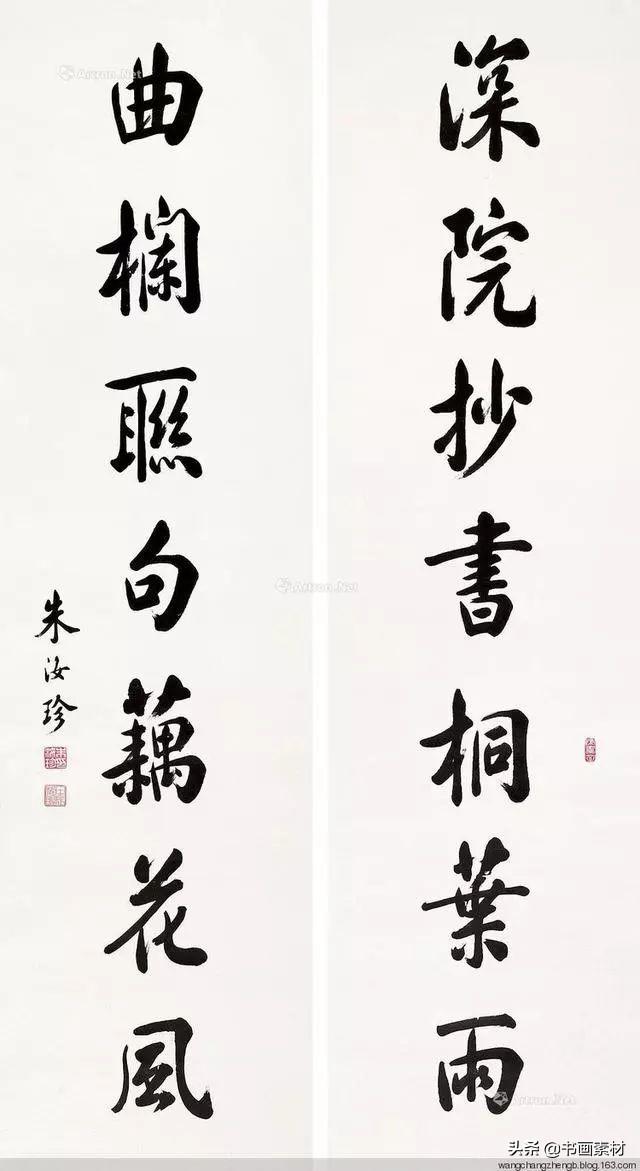 深院抄書桐葉雨
曲欄聯句藕花風
朱汝珍
Artron.Net
Artron.Net
Artron.Net
头条 @书画素材
wangchangzhengb.blog.163.com